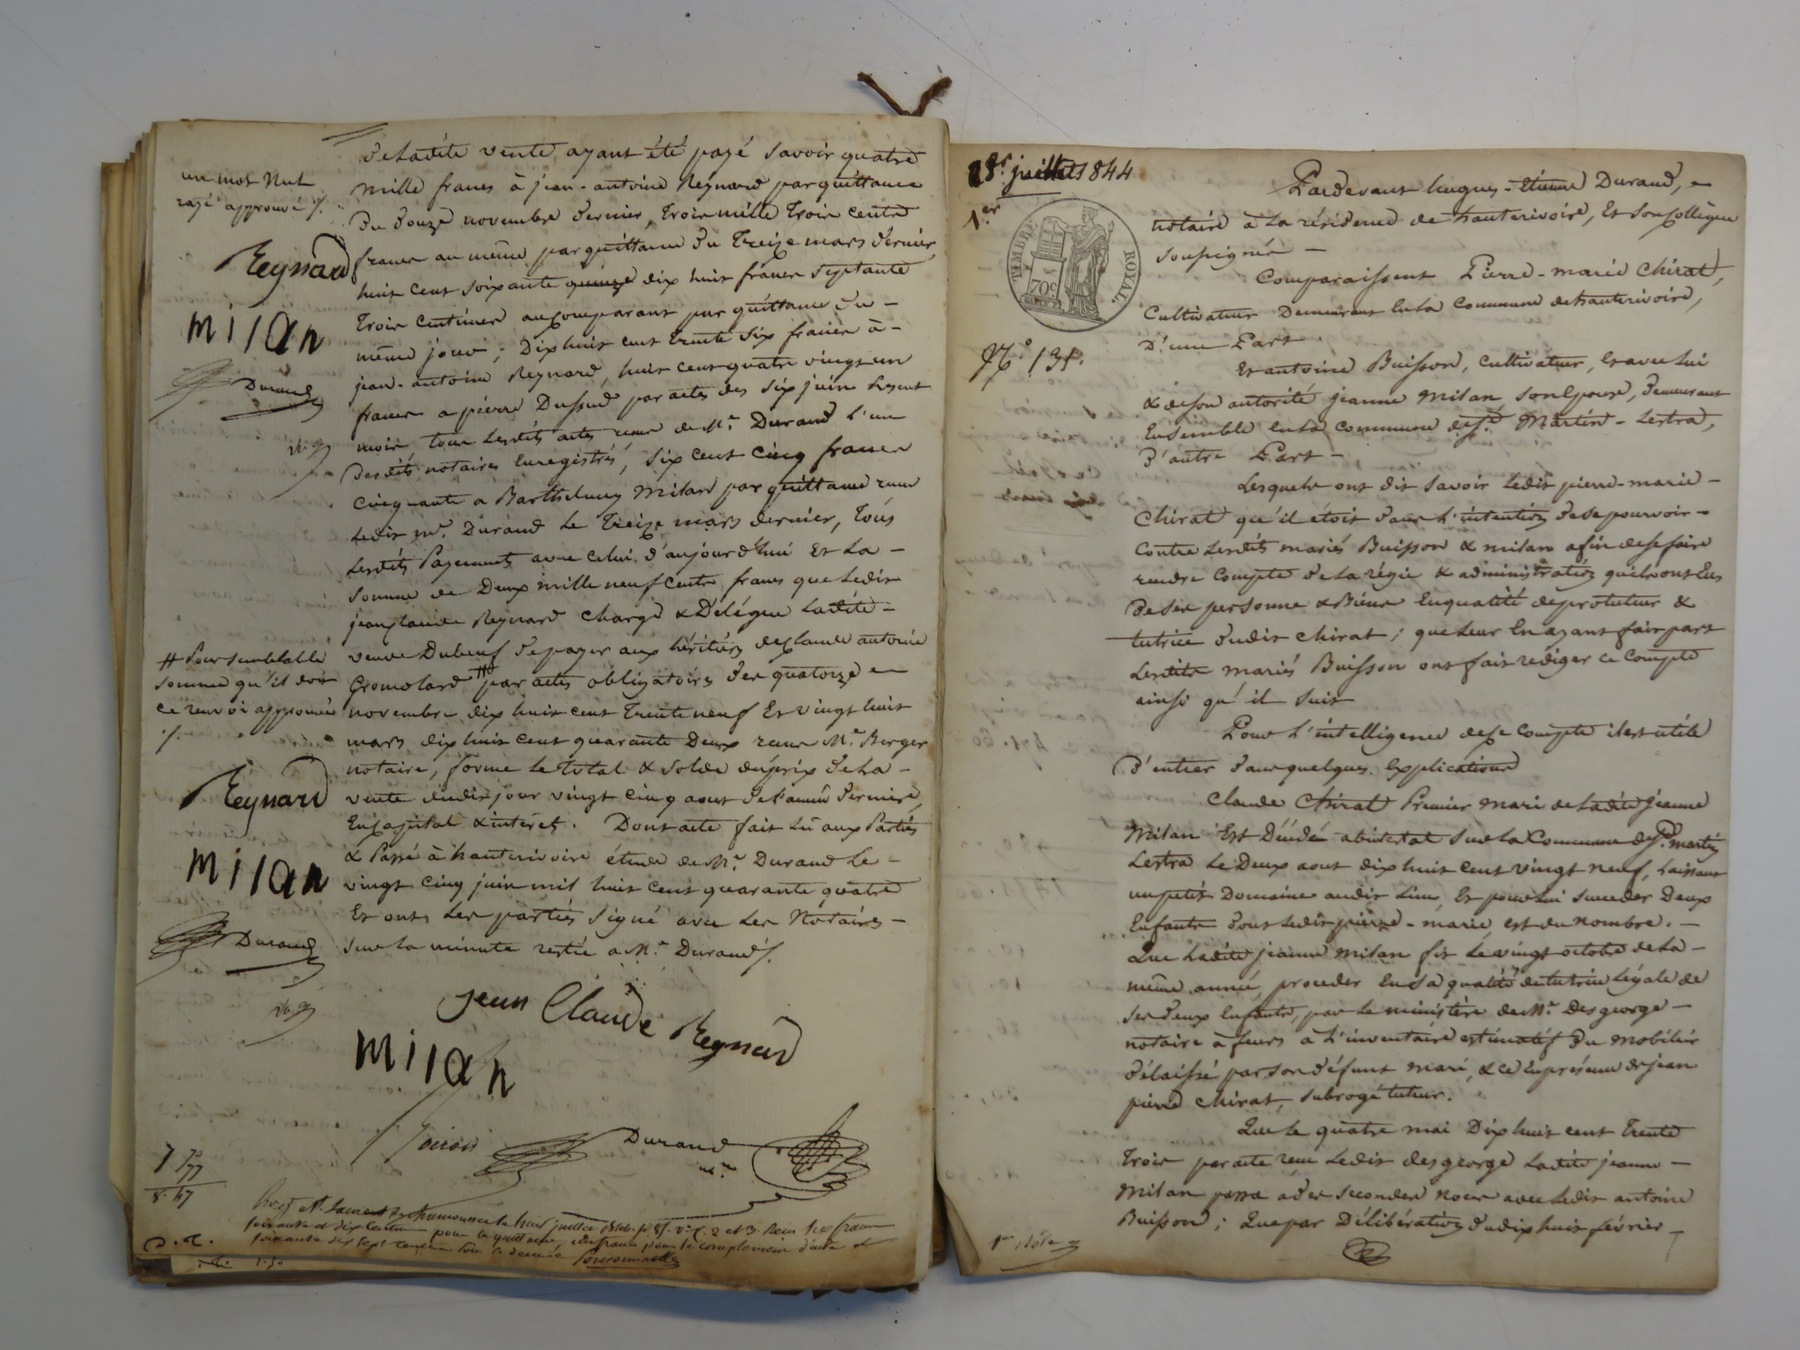 un mot nul
rayé approuvé ./.
Reynard
Milan
Durand
de ladite vente, ayant été payé savoir quatre
mille francs à jean-antoine Reynard par quittance
du douze novembre dernier, trois mille trois cents
francs au même par quittance du treize mars dernier,
huit cent soixante quinze dix huit francs septante
trois centimes au comparant par quittance du -
même jour ; Dix huit cent trente six francs à -
jean-antoine Reynard, huit cent quatre vingt un
francs a pierre Dussud par actes des six juin présent
mois tous lesdits actes reçus de Me. Durand l'un
desdits notaires Enregistrés, six cent cinq francs
cinquante a Barthelemy Milan par quittance reçue
ledit me. Durand le treize mars dernier, tous
lesdits Payements avec celui d'aujourd'hui Et la -
somme de Deux mille neuf cents francs que ledit
jean claude Reynard charge & Délègue ladite -
veuve Dubeuf de payer aux héritiers de claude antoine
Gromolard # par actes obligatoires des quatorze -
novembre dix huit cent trente neuf Et vingt huit
mars dix huit cent quarante Deux reçus Me. Berger
notaire, forme le total & solde du prix de la -
vente dudit jour vingt cinq aout de l'année dernière,
En capital & intérêt. Dont acte fait lu aux Parties
& Passé à hauterivoire étude de Me. Durand le -
vingt cinq juin mil huit cent quarante quatre
Et ont les parties signé avec les Notaires -
sur la minute restée a Me. Durand ./.
# Pour semblable
somme qu'il doit
ce renvoi approuvé
./.
Reynard
Milan
Durand
jean Claude Reynard
Milan
Durand
nre
7 77
8.47
soixante et dix centimes pour la quittance, un franc pour le complement d'acte et
soixante dix sept centimes pour le decime
D. C.
18 juillet 1844
1er
TIMBRE ROYAL
70c
No. 131.
Pardevant hugues-Etienne Durand, -
notaire à la résidence de hauterivoire, Et son collègue
soussignés -
Comparaissent Pierre-marie Chirat,
Cultivateur Demeurant En la Commune de hauterivoire,
D'une Part
Et antoine Buisson, Cultivateur, Et avec lui
& de son autorité jeanne Milan son Epouse, demeurant
Ensemble En la Commune de St. Martin-Lestra,
D'autre Part -
Lesquels ont dit savoir ledit pierre-marie -
Chirat qu'il étoit dans l'intention de se pourvoir -
Contre lesdits mariés Buisson & milan afin de se faire
rendre Compte de la régie & administration qu'ils ont Eus
de ses personne & Biens En qualité de protuteur &
tutrice dudit Chirat ; que leur En ayant fait part
lesdits mariés Buisson ont fait rédiger ce Compte
ainsi qu'il suit
Pour l'intelligence de ce Compte il est utile
d'entrer dans quelques Explications
Claude Chirat Premier mari de ladite jeanne
Milan Est Décédé abintestat sur la Commune de St. martin
Lestra le Deux aout dix huit cent vingt neuf, laissant
un petit Domaine audit lieu, Et pour lui succéder Deux
Enfants dont ledit pierre-marie est du nombre. -
Que ladite jeanne Milan fit le vingt octobre de la -
même année, procéder En sa qualité de tutrice légale de
ses deux Enfants, par le ministère de Me. Desgeorge -
notaire à feurs à l'inventaire estimatif du mobilier
délaissé par son défunt mari, & ce En présence de jean
pierre Chirat, subrogé tuteur.
Que le quatre mai Dix huit cent trente
trois par acte reçu ledit desgeorge ladite jeanne -
Milan passa a des secondes noces avec ledit antoine
Buisson ; Que par Délibération du dix huit février -
1er Rôle